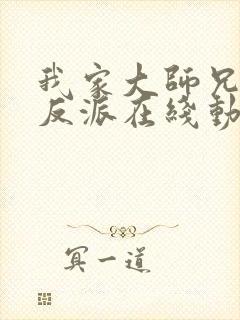 我家大師兄
反派在綫動
冥一道